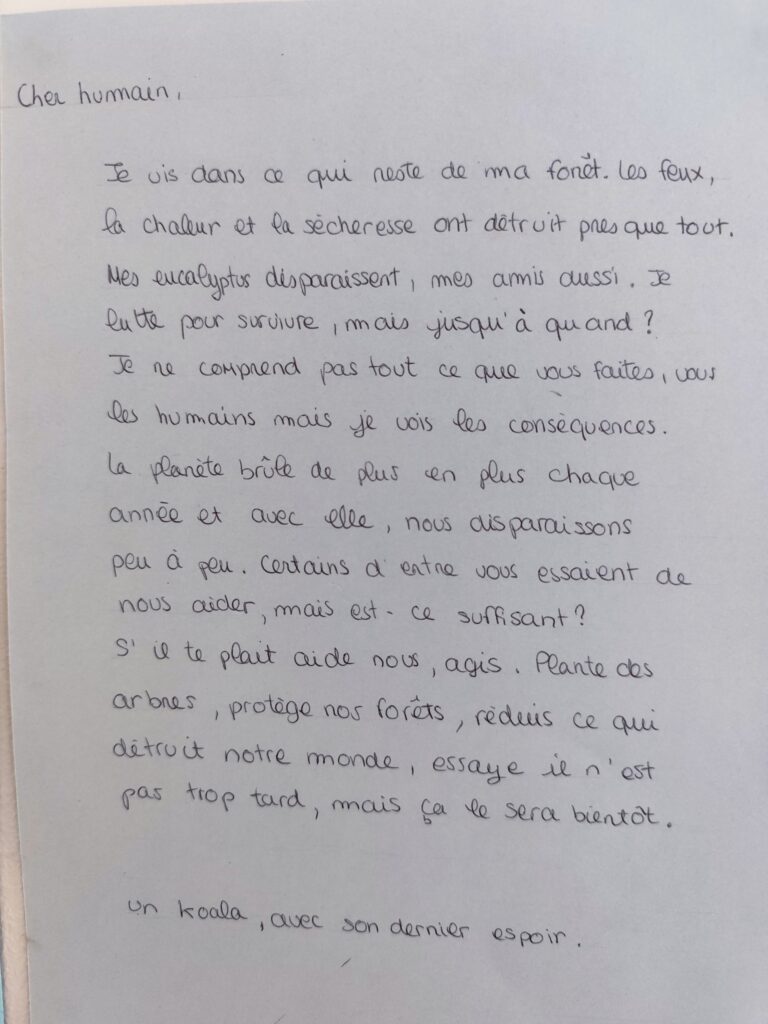 Cher humain,
Je vis dans ce qui reste de ma forêt. Les feux,
la chaleur et la sècheresse ont détruit presque tout.
Mes eucalyptus disparaissent, mes amis aussi. Je
lutte pour survivre, mais jusqu'à quand ?
Je ne comprend pas tout ce que vous faites, vous
les humains mais je vois les conséquences.
La planète brûle de plus en plus chaque
année et avec elle, nous disparaissons
peu à peu. Certains d'entre vous essaient de
nous aider, mais est-ce suffisant ?
S'il te plait aide nous, agis. Plante des
arbres, protège nos forêts, réduis ce qui
détruit notre monde, essaye il n'est
pas trop tard, mais ça le sera bientôt.
un koala, avec son dernier espoir.